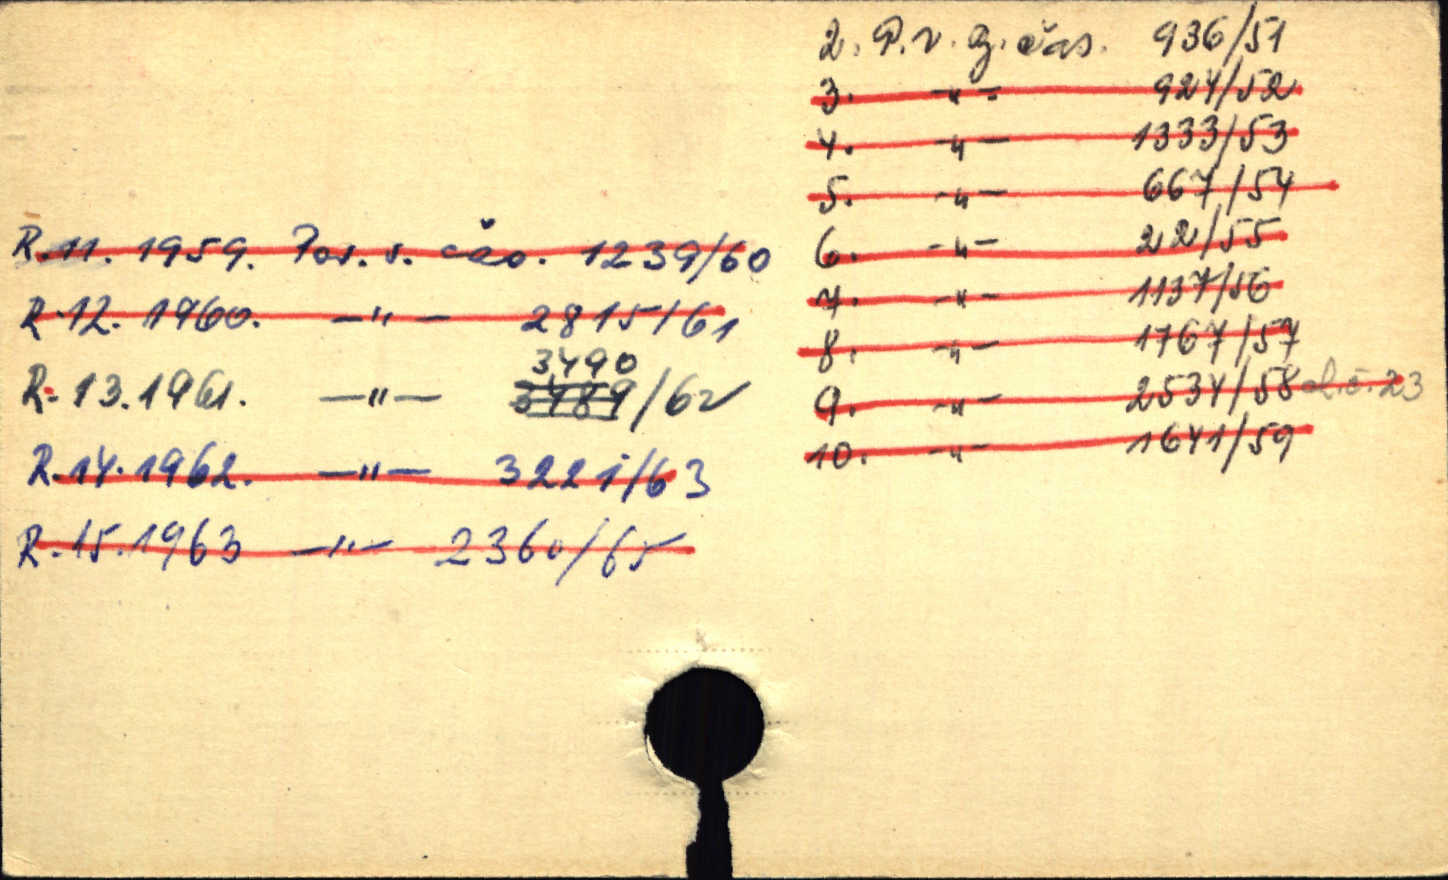 2. P. v. z. čas. 936/51
3. -"- 924/52
4. -"- 1333/53
5. -"- 667/54
6. -"- 22/55
7. -"- 1137/56
8. -"- 1767/57
9. -"- 2534/58 ch. č. 23
10. -"- 1641/59
R. 11. 1959. Por. s. čas. 1239/60
R. 12. 1960. —"— 2815/61
3490
R. 13. 1961. —"— 3489/62
R. 14. 1962. —"— 3221/63
R. 15. 1963 —"— 2360/65